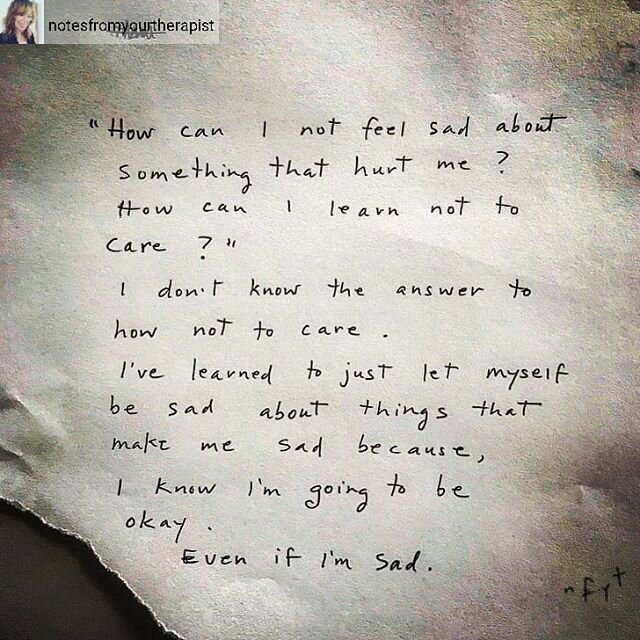 notesfromyourtherapist
"How can I not feel sad about
something that hurt me?
How can I learn not to
care?"
I don't know the answer to
how not to care.
I've learned to just let myself
be sad about things that
make me sad because,
I know I'm going to be
okay.
Even if I'm sad.
nfyt